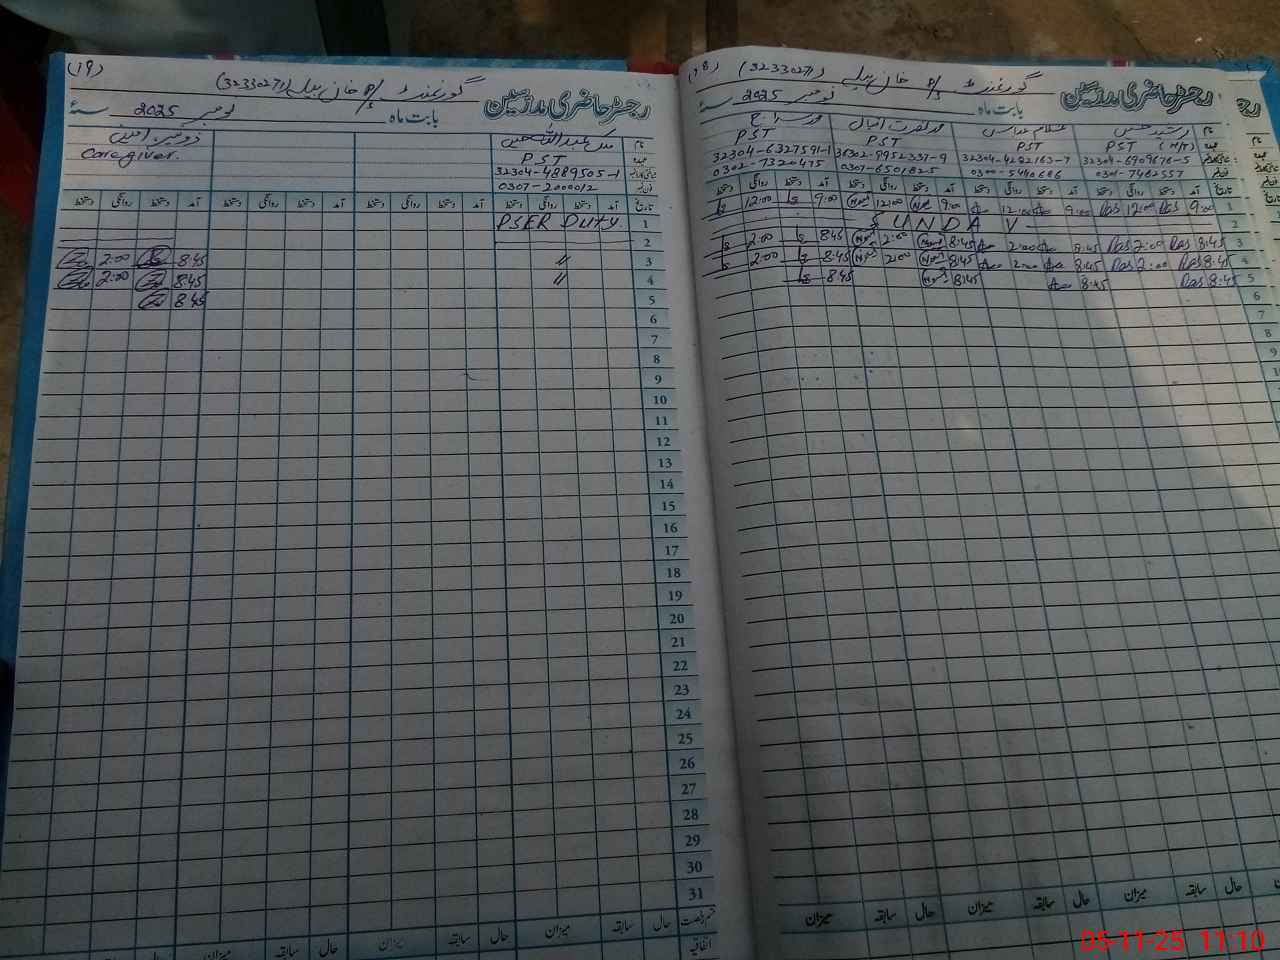 (18) (32330271) گورنمنٹ P/S خان بیلہ
رجسٹر حاضری مدرسین بابت ماہ نومبر 2025 سنہ
نام رشید حسین غلام عباس محمد نصرت اقبال
عہدہ PST (H/T) PST PST PST
32304-6909676-5 32304-4282163-7 36302-9952337-9 32304-6327591-1
0301-7462557 0300-5440686 0307-6501825 0302-7320475
تاریخ آمد دستخط روانگی دستخط آمد دستخط روانگی دستخط آمد دستخط روانگی دستخط آمد دستخط روانگی دستخط
1 9:00 Ras 12:00 Ras 9:00 12:00 9:00 12:00 9:00 12:00
2 SUNDAY
3 8:45 Ras 2:00 Ras 8:45 2:00 8:45 2:00 8:45 2:00
4 8:45 Ras 2:00 Ras 8:45 2:00 8:45 2:00 8:45 2:00
5 8:45 Ras 8:45 8:45 8:45
6
7
8
9
میزان سابقہ حال میزان سابقہ حال میزان سابقہ حال
(19) (32330271) گورنمنٹ P/S خان بیلہ
رجسٹر حاضری مدرسین بابت ماہ نومبر 2025 سنہ
نام
PST Caregiver.
32304-4889505-1
0307-2000012
تاریخ آمد دستخط روانگی دستخط آمد دستخط روانگی دستخط آمد دستخط روانگی دستخط آمد دستخط روانگی دستخط
1 PSER DUTY.
2
3 // 8:45 2:00
4 // 8:45 2:00
5 8:45
6
7
8
9
10
11
12
13
14
15
16
17
18
19
20
21
22
23
24
25
26
27
28
29
30
31
رخصت حال سابقہ میزان حال سابقہ میزان حال سابقہ میزان
اتفاقیہ
05-11-25 11:10